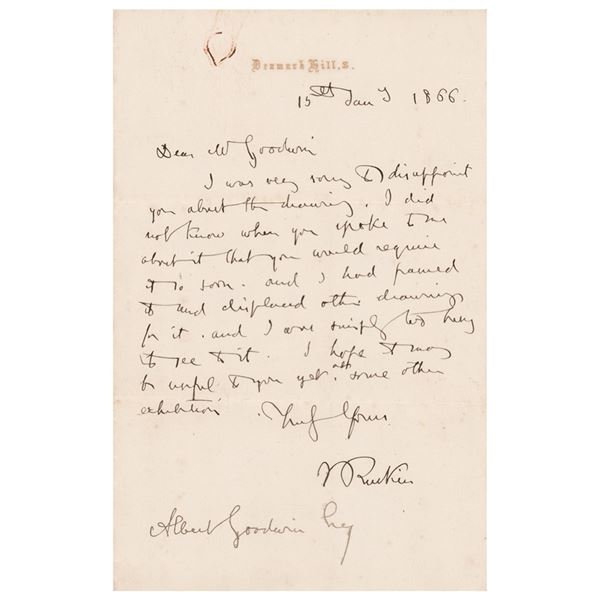 Denmark Hill, S.
15th Jany 1866.
Dear Mr Goodwin
I was very sorry to disappoint
you about the drawing. I did
not know when you spoke to me
about it that you would require
it so soon. and I had framed
it and displaced other drawings
for it. and I was simply too busy
to see to it. I hope it may
be useful to you yet at some other
exhibition. Truly Yours
J Ruskin
Albert Goodwin Esq